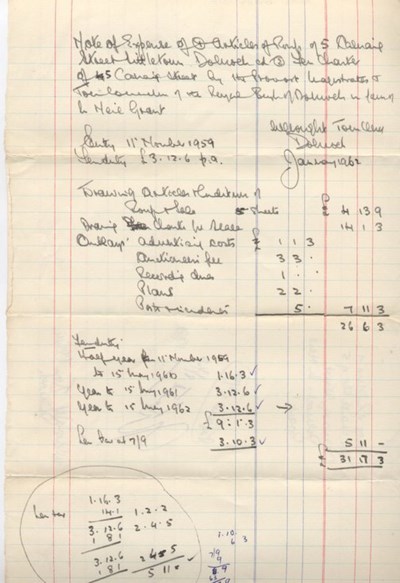 Note of Expense of ① Articles of Roup of 5 Carnaig
Street Littletown Dornoch and ② Feu Charter
of 5 Carnaig Street by the Provost Magistrates &
Town Councillors of the Royal Burgh of Dornoch in favour of
Neil Grant
Town Clerk
Dornoch
January 1962
Entry 11 November 1959
Feuduty £3.12.6 p.a.
Drawing Articles & Conditions of
Roup & Sale 5 sheets £ 4 13 9
Drawing Charter 14 1 3
Outlays: advertising costs £ 1 1 3
Auctioneers fee 3 3 .
Recording dues 1 . .
Plans 2 2 .
Post & incidents 5 . 7 11 3
26 6 3
Feuduty:
Half year from 11 November 1959
to 15 May 1960 1.16.3 ✓
Year to 15 May 1961 3.12.6 ✓
Year to 15 May 1962 3.12.6 ✓ →
£9.1.3
Less tax at 7/9 3.10.3 ✓ 5 11 -
£ 31 17 3
1.16.3
Less tax 14.1 1.2.2
3.12.6 2.4.5
1 8 1
3.12.6 2 4 5
1 8 1 5 11 0 ✓
1.10
6 3
7/9